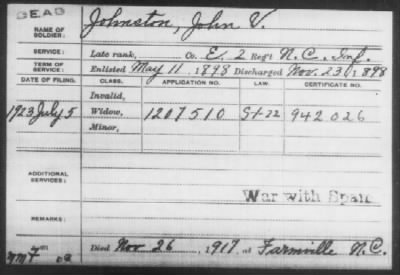 DEAD
NAME OF SOLDIER: Johnston, John V.
SERVICE: Late rank, Co. E, 2 Reg't N. C. Inf.
TERM OF SERVICE: Enlisted May 11, 1898 Discharged Nov. 23, 1898
DATE OF FILING. CLASS. APPLICATION NO. LAW. CERTIFICATE NO.
Invalid,
1923 July 5 Widow, 1207510 942026
Minor,
ADDITIONAL SERVICES:
War with Spain
REMARKS:
Died Nov. 26, 1917, at Farmville N.C.